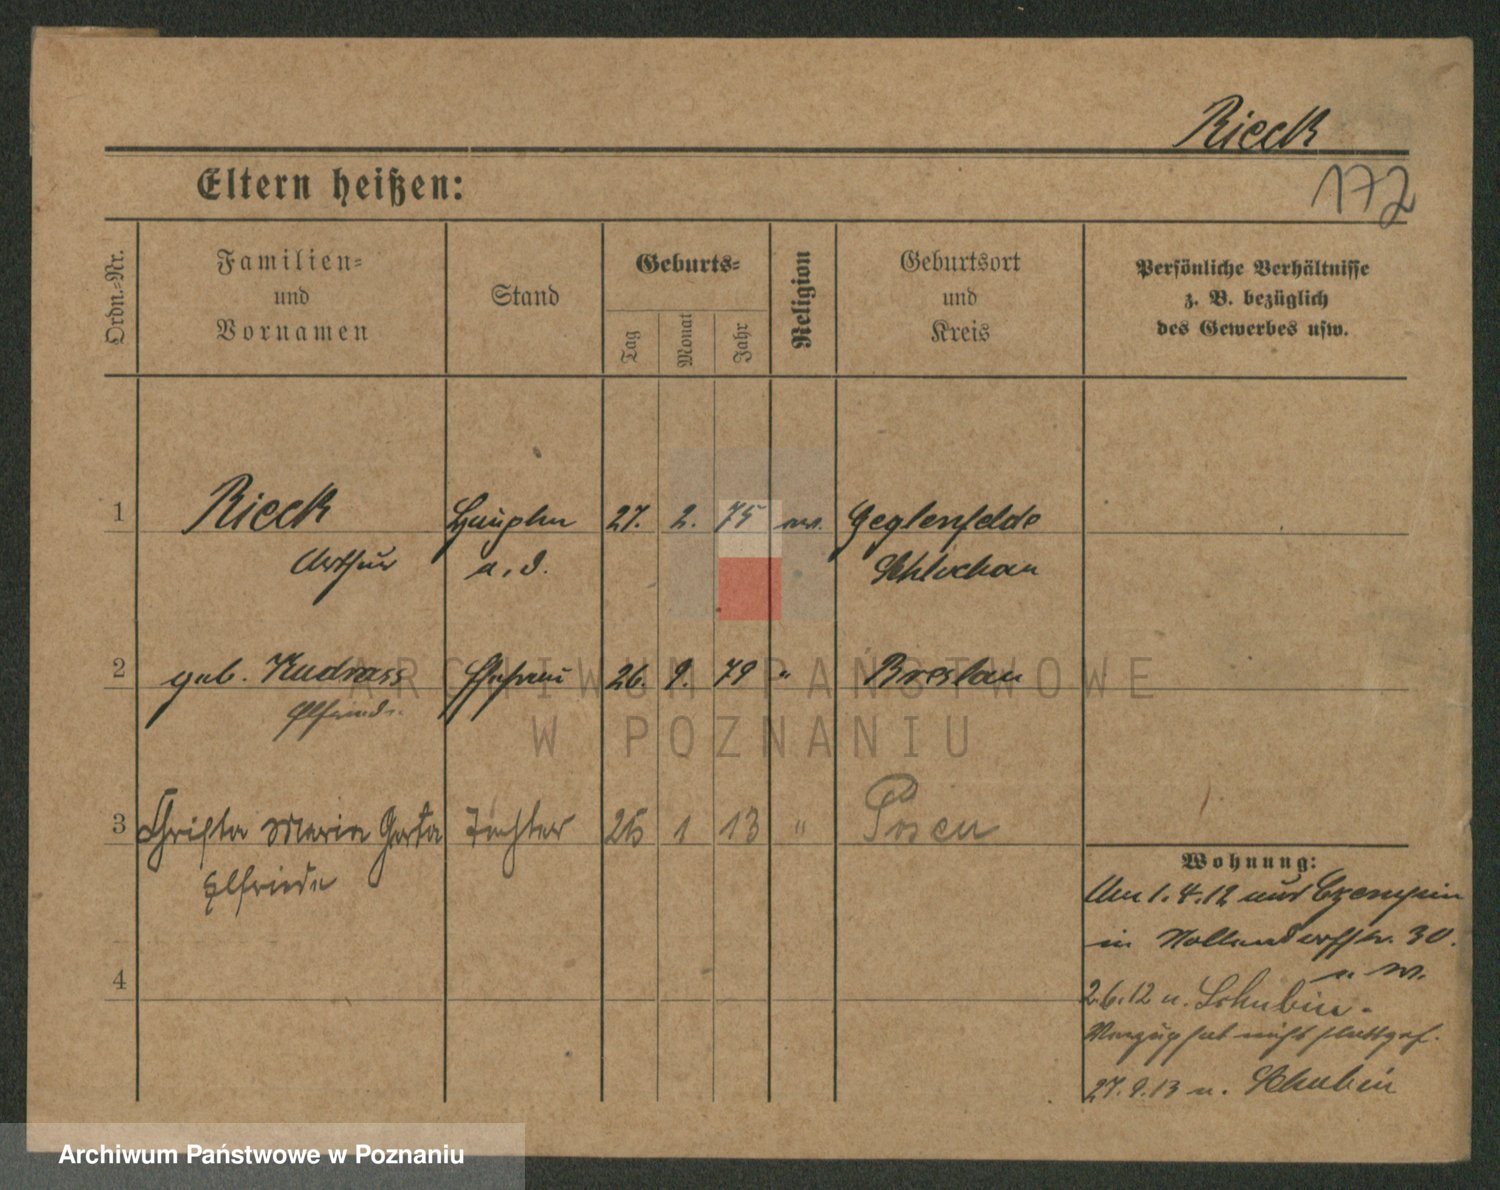 Rieck
172
Eltern heißen:
Ordn.-Nr.
Familien-
und
Vornamen
Stand
Geburts-
Tag
Monat
Jahr
Religion
Geburtsort
und
Kreis
Persönliche Verhältnisse
z. B. bezüglich
des Gewerbes usw.
1 Rieck Hauptm 27. 2. 75 ev. Geglenfelde
Arthur a. D. Schlochau
2 geb. Kudrass Ehefrau 26. 9. 79 " Breslau
Elfriede
3 Christa Maria Gerta Tochter 26 1 13 " Posen
Elfriede
4
Wohnung:
Am 1. 4. 12 aus Czempin
in Nollendorfstr. 30.
2.6.12 n. Schubin.
Verzug hat nicht stattgef.
27. 9. 13 n. Schubin
ARCHIWUM PAŃSTWOWE
W POZNANIU
Archiwum Państwowe w Poznaniu